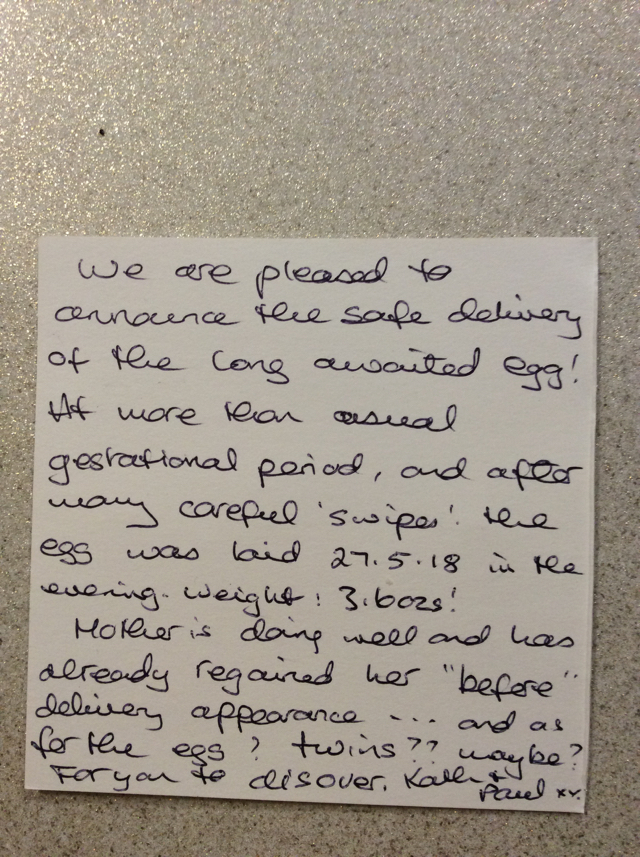 We are pleased to
announce the safe delivery
of the long awaited egg!
At more than usual
gestational period, and after
many careful 'swipes'. the
egg was laid 27.5.18 in the
evening. weight: 3.6ozs!
Mother is doing well and has
already regained her "before"
delivery appearance ... and as
for the egg? twins?? maybe?
For you to disover. Kath &
Paul xx.